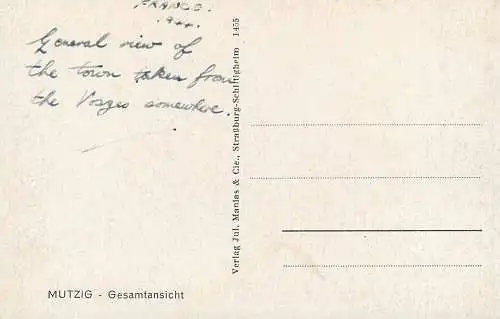 FRANCE.
1944.
General view of
the town taken from
the Vosges somewhere.
Verlag Jul. Manias & Cie., Straßburg-Schiltigheim 1455
MUTZIG - Gesamtansicht